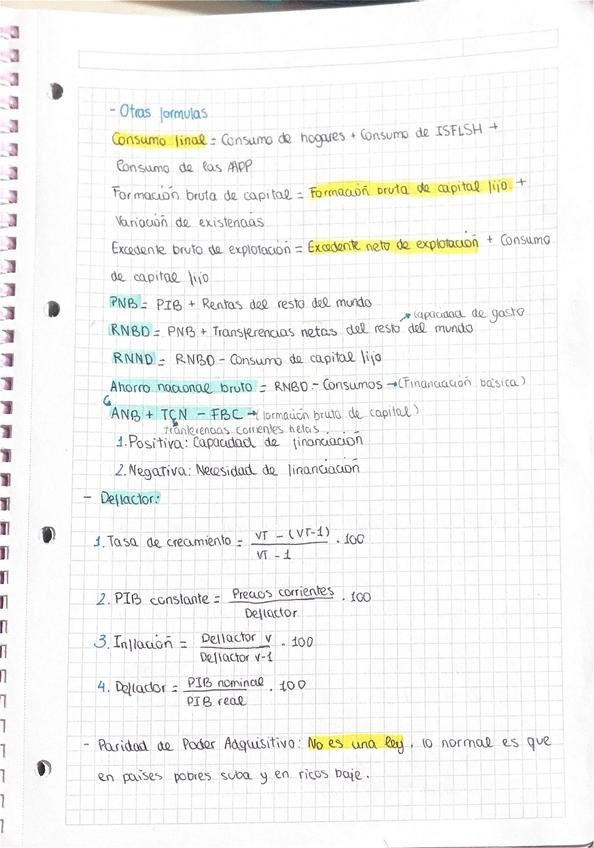 - Otras formulas
Consumo final = Consumo de hogares + Consumo de ISFLSH +
Consumo de las AAPP
Formación bruta de capital = Formación bruta de capital fijo +
Variación de existencias
Excedente bruto de explotación = Excedente neto de explotación + Consumo
de capital fijo
PNB = PIB + Rentas del resto del mundo
→ capacidad de gasto
RNBD = PNB + Transferencias netas del resto del mundo
RNND = RNBD - Consumo de capital fijo
Ahorro nacional bruto = RNBD - Consumos → (Financiación básica)
ANB + TCN - FBC → (formación bruta de capital)
tranferencias corrientes netas.
1. Positiva: Capacidad de financiación
2. Negativa: Necesidad de financiación
- Deflactor:
1. Tasa de crecimiento = VT - (VT-1) / VT - 1 . 100
2. PIB constante = Precios corrientes / Deflactor . 100
3. Inflación = Deflactor v / Deflactor v-1 . 100
4. Deflactor = PIB nominal / PIB real . 100
- Paridad de Poder Adquisitivo: No es una ley, lo normal es que
en paises pobres suba y en ricos baje.